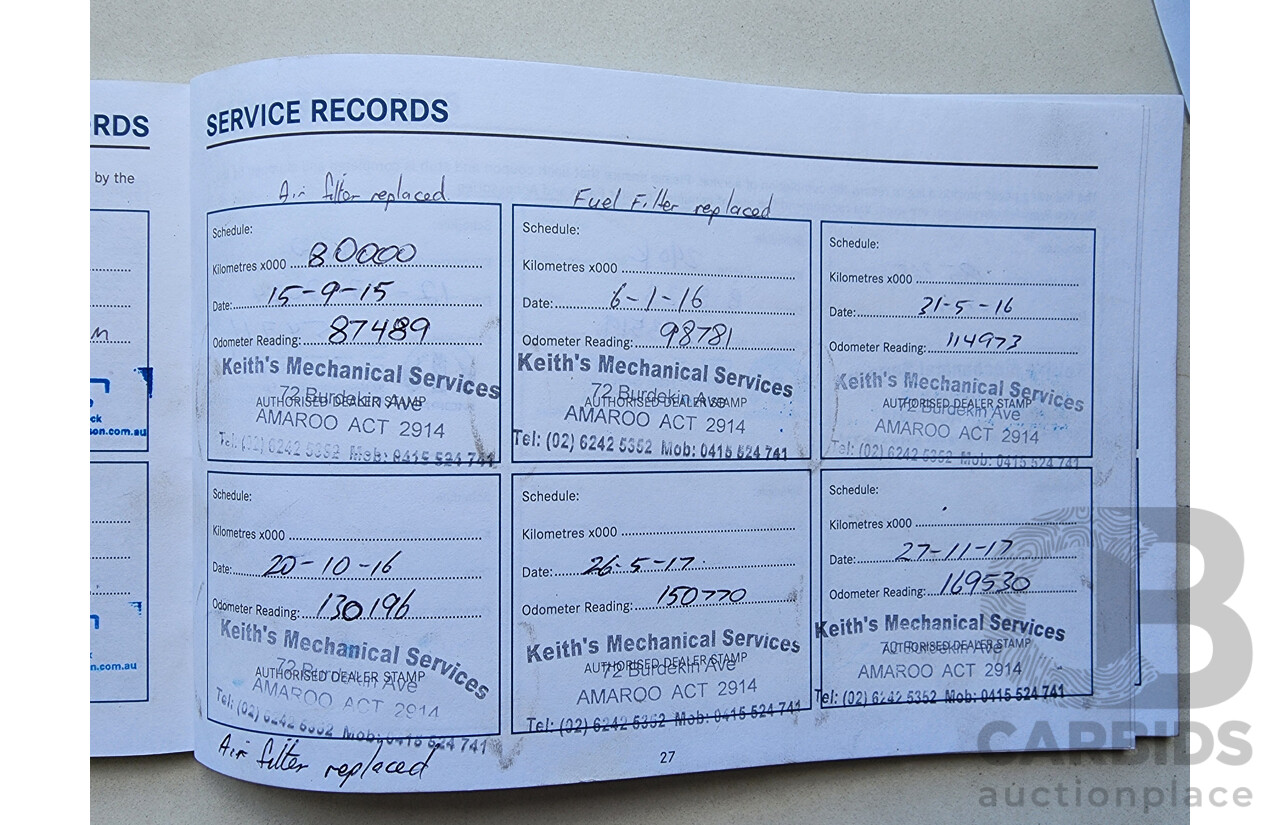 RDS
by the
m
ck
son.com.au
n.com.au
SERVICE RECORDS
Air filter replaced
Schedule:
Kilometres x000 80000
Date: 15-9-15
Odometer Reading: 87489
Keith's Mechanical Services
72 Burdekin Ave
AUTHORISED DEALER STAMP
AMAROO ACT 2914
Tel: (02) 6242 5352 Mob: 0415 524 741
Fuel Filter replaced
Schedule:
Kilometres x000
Date: 6-1-16
Odometer Reading: 98781
Keith's Mechanical Services
72 Burdekin Ave
AUTHORISED DEALER STAMP
AMAROO ACT 2914
Tel: (02) 6242 5352 Mob: 0415 524 741
Schedule:
Kilometres x000
Date: 31-5-16
Odometer Reading: 114973
Keith's Mechanical Services
AUTHORISED DEALER STAMP
72 Burdekin Ave
AMAROO ACT 2914
Tel: (02) 6242 5352 Mob: 0415 524 741
Schedule:
Kilometres x000
Date: 20-10-16
Odometer Reading: 130196
Keith's Mechanical Services
72 Burdekin Ave
AUTHORISED DEALER STAMP
AMAROO ACT 2914
Tel: (02) 6242 5352 Mob: 0415 524 741
Air filter replaced
Schedule:
Kilometres x000
Date: 26-5-17
Odometer Reading: 150770
Keith's Mechanical Services
AUTHORISED DEALER STAMP
72 Burdekin Ave
AMAROO ACT 2914
Tel: (02) 6242 5352 Mob: 0415 524 741
Schedule:
Kilometres x000
Date: 27-11-17
Odometer Reading: 169530
Keith's Mechanical Services
AUTHORISED DEALER STAMP
72 Burdekin Ave
AMAROO ACT 2914
Tel: (02) 6242 5352 Mob: 0415 524 741
27
CARBIDS
auctionplace